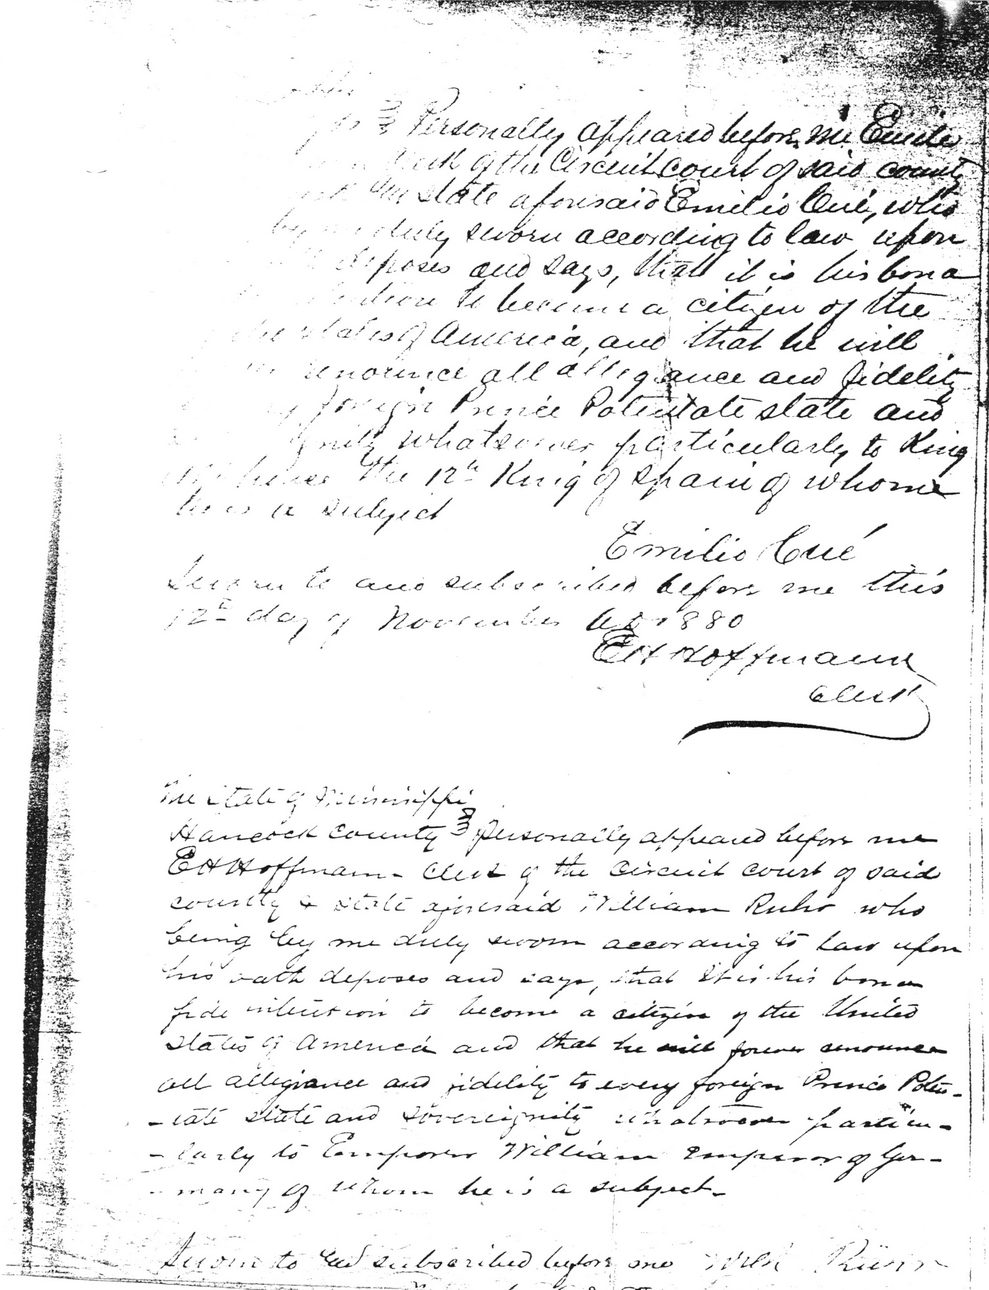 Personally appeared before me Emile
of the Circuit court of said county
the state aforesaid Emilio Cué, who
by me duly sworn according to law upon
deposes and says, that it is his bona
to become a citizen of the
states of America, and that he will
renounce all allegiance and fidelity
foreign Prince Potentate state and
whatsoever particularly to King
the 12th King of Spain of whome
he is a subject
Emilio Cué
Sworn to and subscribed before me this
12th day of November AD 1880
EH Hoffmann
Clerk
The State of Mississippi
Hancock county Personally appeared before me
EH Hoffmann - Clerk of the Circuit court of said
county & state aforesaid William Ruhr who
being by me duly sworn according to law upon
his oath deposes and says, that it is his bona
fide intention to become a citizen of the United
States of America and that he will forever renounce
all allegiance and fidelity to every foreign Prince Poten-
-tate state and sovereignity whatsoever particu-
-larly to Emperor William Emperor of Ger-
-many of whom he is a subject-
Sworn to and subscribed before me